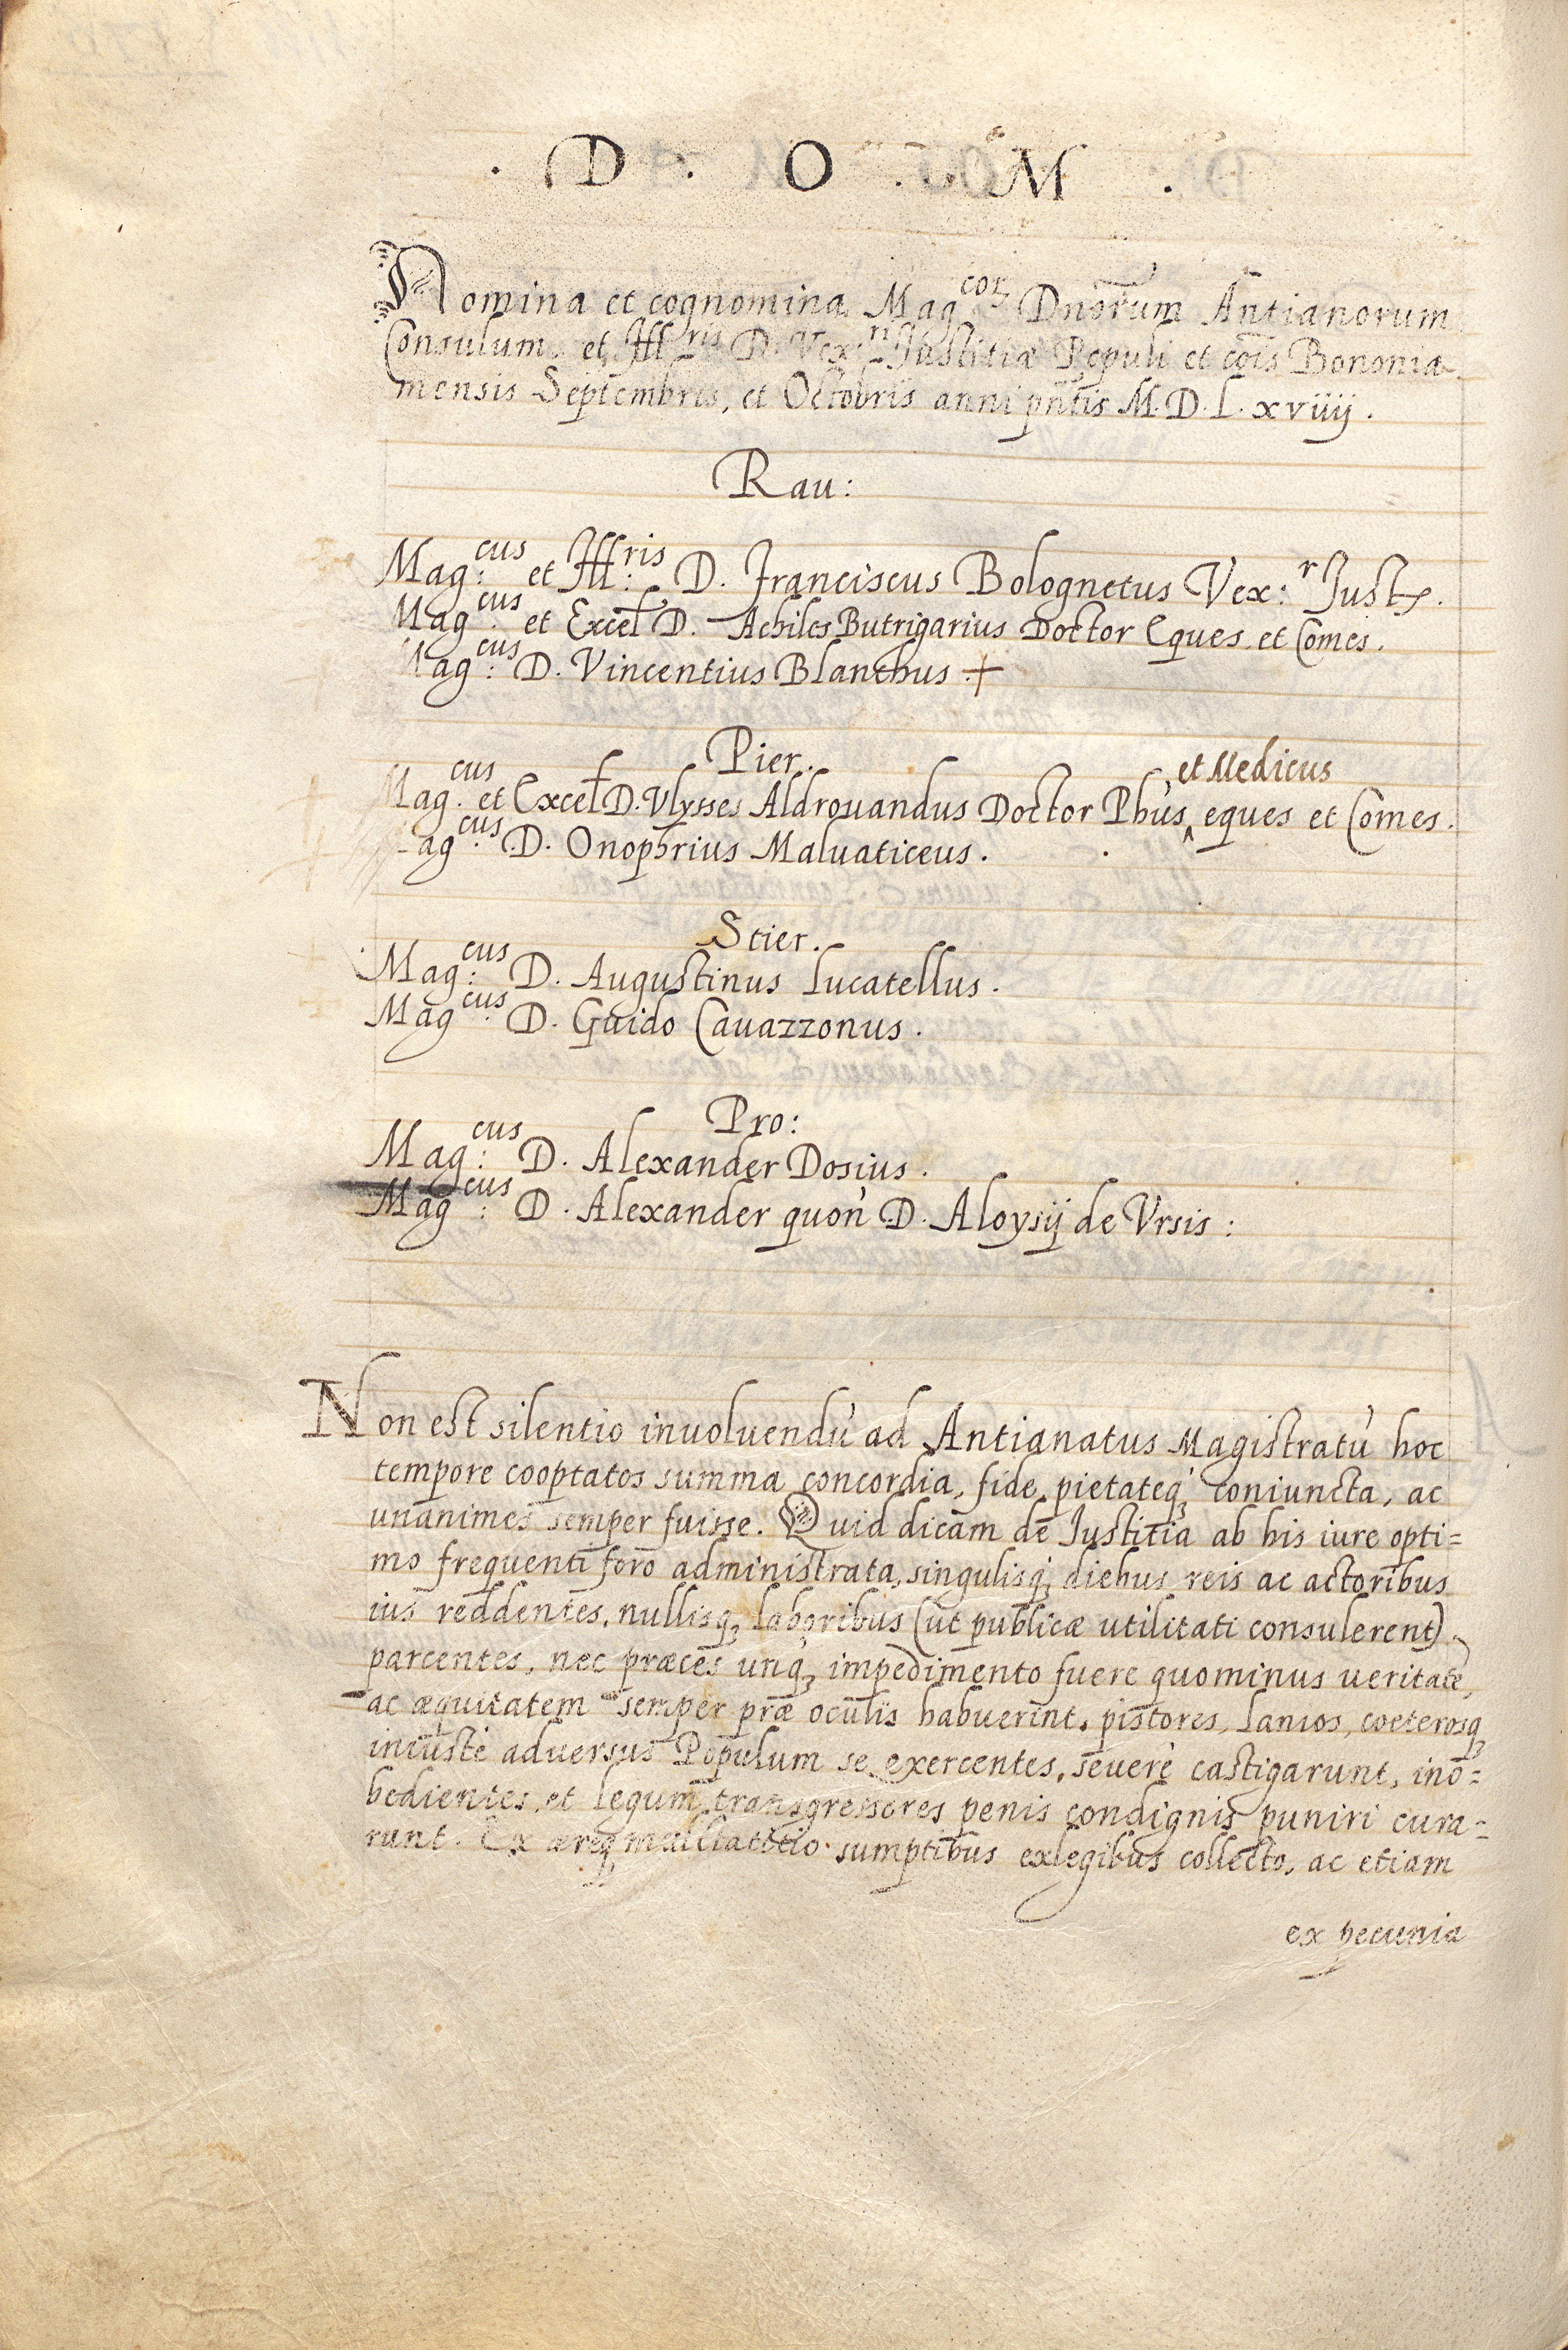 . D . O . M .
Nomina et cognomina Mag^cor Dnorum Antianorum
Consulum, et Ill^ris D. Vex^ri Justitiæ Populi et cois Bononiæ
mensis Septembris, et Octobris anni pntis M. D. L. xviiij.
Rau:
Mag:^cus et Ill:^ris D. Franciscus Bolognetus Vex:^r Just.
Mag:^cus et Excel D. Achiles Butrigarius Doctor Eques et Comes.
Mag:^cus D. Vincentius Blanchus +
Pier.
et Medicus
Mag.^cus et Excel D. Vlysses Aldrouandus Doctor Phus ^ eques et Comes.
Mag:^cus D. Onophrius Maluaticeus.
Stier.
Mag:^cus D. Augustinus Lucatellus.
Mag:^cus D. Guido Cauazzonus.
Pro:
Mag:^cus D. Alexander Dosius.
Mag:^cus D. Alexander quon̄ D. Aloysij de Vrsis:
Non est silentio inuoluendū ad Antianatus Magistratū hoc
tempore cooptatos summa concordia, fide, pietateq; coniuncta, ac
unanimes semper fuisse. Quid dicam de Justitia ab his iure opti=
mo frequenti foro administrata, singulisq; diebus reis ac actoribus
ius reddentes, nullisq; laboribus (ut publicæ utilitati consulerent)
parcentes, nec præces unq; impedimento fuere quominus veritatē,
ac æquitatem semper præ oculis habuerint, pistores, lanios, coeterosq;
iniustè aduersus Populum se exercentes, seuerè castigarunt, ino=
bedientes, et legum transgressores penis condignis puniri cura=
runt. Ex æreq; mulctatitio sumptibus exlegibus collecto, ac etiam
ex pecunia